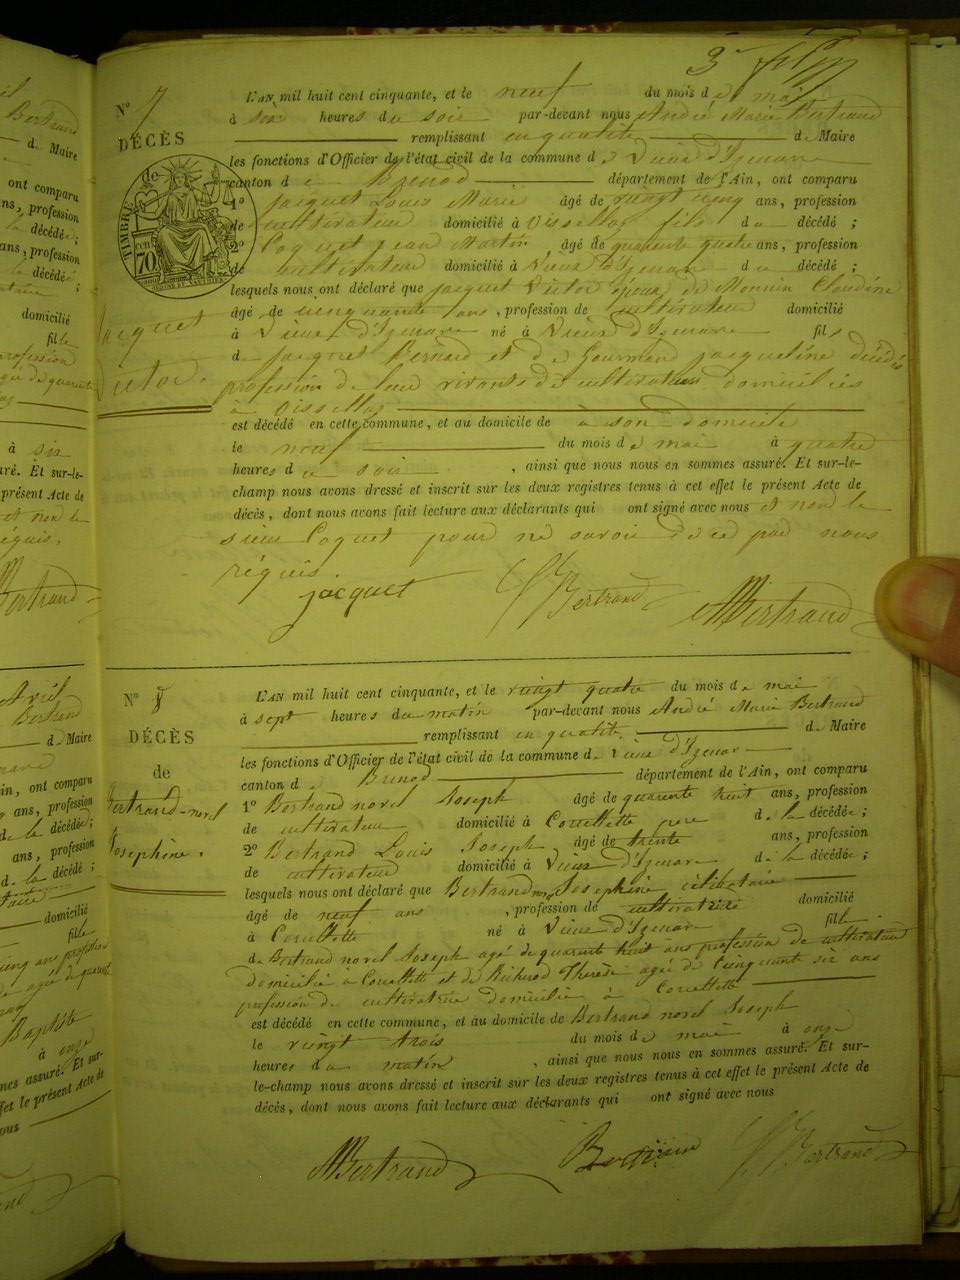 3e
N° 7
DÉCÈS
de
Jacquet
Victor.
TIMBRE
70
L'AN mil huit cent cinquante, et le neuf du mois de mai
à six heures du soir par-devant nous André Marie Bertrand
remplissant en qualité de Maire
les fonctions d'Officier de l'état civil de la commune de Vieux d'Izenave
canton de Brénod département de l'Ain, ont comparu
1° Jacquet Louis Marie âgé de vingt cinq ans, profession
de cultivateur domicilié à Oissellaz fils du décédé;
2° Coquet Jean Martin âgé de quarante quatre ans, profession
de cultivateur domicilié à Vieux d'Izenave du décédé;
lesquels nous ont déclaré que Jacquet Victor époux de Monnin Claudine
âgé de cinquante ans, profession de cultivateur domicilié
à Vieux d'Izenave né à Vieux d'Izenave fils
de Jacquet Bernard et de Gourmand Jacqueline décédés
profession de leur vivants de cultivateurs domiciliés
à Oissellaz
est décédé en cette commune, et au domicile de à son domicile
le neuf du mois de mai à quatre
heures du soir, ainsi que nous nous en sommes assuré. Et sur-le-
champ nous avons dressé et inscrit sur les deux registres tenus à cet effet le présent Acte de
décès, dont nous avons fait lecture aux déclarants qui ont signé avec nous et non le
sieur Coquet pour ne savoir de ce par nous
réquis.
Jacquet Bertrand Bertrand
N° 8
DÉCÈS
de
Bertrand-novel
Josephine.
L'AN mil huit cent cinquante, et le vingt quatre du mois de mai
à sept heures du matin par-devant nous André Marie Bertrand
remplissant en qualité de Maire
les fonctions d'Officier de l'état civil de la commune de Vieux d'Izenave
canton de Brénod département de l'Ain, ont comparu
1° Bertrand novel Joseph âgé de quarante huit ans, profession
de cultivateur domicilié à Corcellette père de la décédée;
2° Bertrand Louis Joseph âgé de trente ans, profession
de cultivateur domicilié à Vieux d'Izenave de la décédée;
lesquels nous ont déclaré que Bertrand novel Josephine célibataire
âgé de neuf ans, profession de cultivatrice domicilié
à Corcellette né à Vieux d'Izenave fille
de Bertrand novel Joseph agé de quarante huit ans profession de cultivateur
domicilié à Corcellette et de Richerod Thérèse agée de cinquante six ans
profession de cultivatrice domicilié à Corcellette
est décédé en cette commune, et au domicile de Bertrand novel Joseph
le vingt trois du mois de mai à onze
heures du matin, ainsi que nous nous en sommes assuré. Et sur-
le-champ nous avons dressé et inscrit sur les deux registres tenus à cet effet le présent Acte de
décès, dont nous avons fait lecture aux déclarants qui ont signé avec nous
Bertrand Bertrand